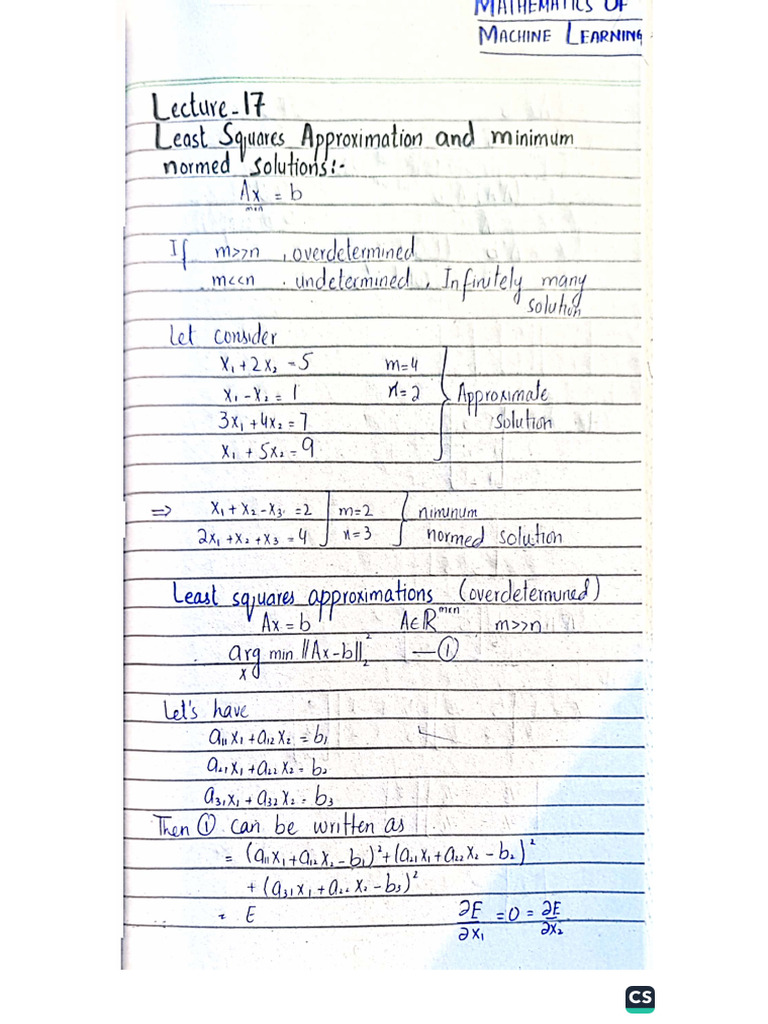 MATHEMATICS OF
MACHINE LEARNING
Lecture-17
Least Squares Approximation and minimum
normed solutions:-
Ax = b
m×n
If m>>n , overdetermined
m<<n . undetermined, Infinitely many
solution
Let consider
x₁ + 2x₂ = 5 m=4
x₁ - x₂ = 1 n=2 Approximate
3x₁ + 4x₂ = 7 solution
x₁ + 5x₂ = 9
⇒ x₁ + x₂ - x₃ = 2 m=2 minumum
2x₁ + x₂ + x₃ = 4 n=3 normed solution
Least squares approximations (overdetermined)
Ax = b A∈ℝᵐˣⁿ m>>n
arg min ||Ax-b||₂² —①
x
Let's have
a₁₁x₁ + a₁₂x₂ = b₁
a₂₁x₁ + a₂₂x₂ = b₂
a₃₁x₁ + a₃₂x₂ = b₃
Then ① can be written as
= (a₁₁x₁ + a₁₂x₂ - b₁)² + (a₂₁x₁ + a₂₂x₂ - b₂)²
+ (a₃₁x₁ + a₂₂x₂ - b₃)²
= E ∂E/∂x₁ = 0 = ∂E/∂x₂
CS